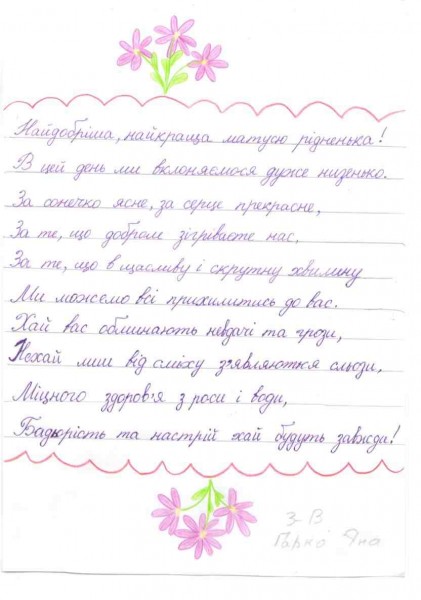 Найдобріша, найкраща матусю рідненька!
В цей день ми вклоняємося дуже низенько.
За сонечко ясне, за серце прекрасне,
За те, що добром зігріваєте нас,
За те, що в щасливу і скрутну хвилину
Ми можемо всі прихилитись до вас.
Хай вас обминають невдачі та грози,
Нехай лиш від сміху з'являються сльози,
Міцного здоров'я з роси і води,
Бадьорість та настрій хай будуть завжди!
3-В
Гарко Яна